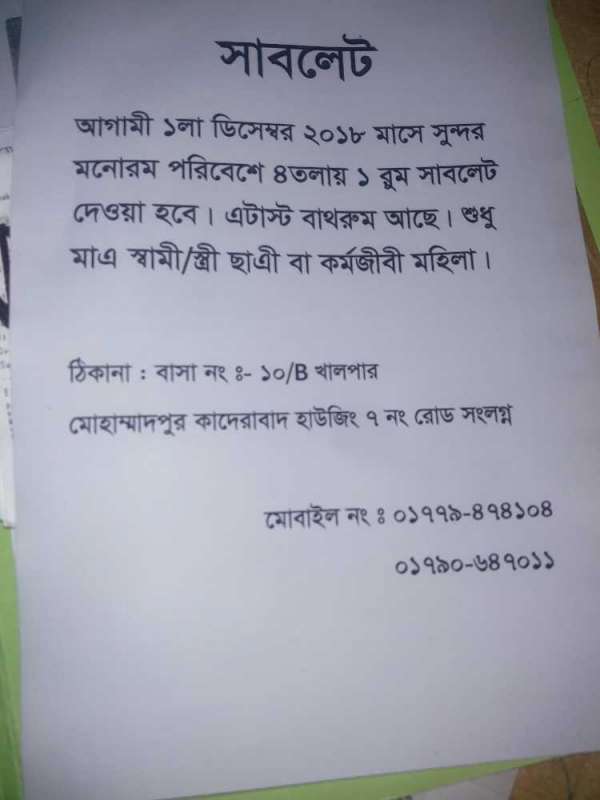 সাবলেট
আগামী ১লা ডিসেম্বর ২০১৮ মাসে সুন্দর
মনোরম পরিবেশে ৪তলায় ১ রুম সাবলেট
দেওয়া হবে। এটাস্ট বাথরুম আছে। শুধু
মাএ স্বামী/স্ত্রী ছাএী বা কর্মজীবী মহিলা।
ঠিকানা : বাসা নং ঃ- ১০/B খালপার
মোহাম্মাদপুর কাদেরাবাদ হাউজিং ৭ নং রোড সংলগ্ন
মোবাইল নং ঃ ০১৭৭৯-৪৭৪১০৪
০১৭৯০-৬৪৭০১১